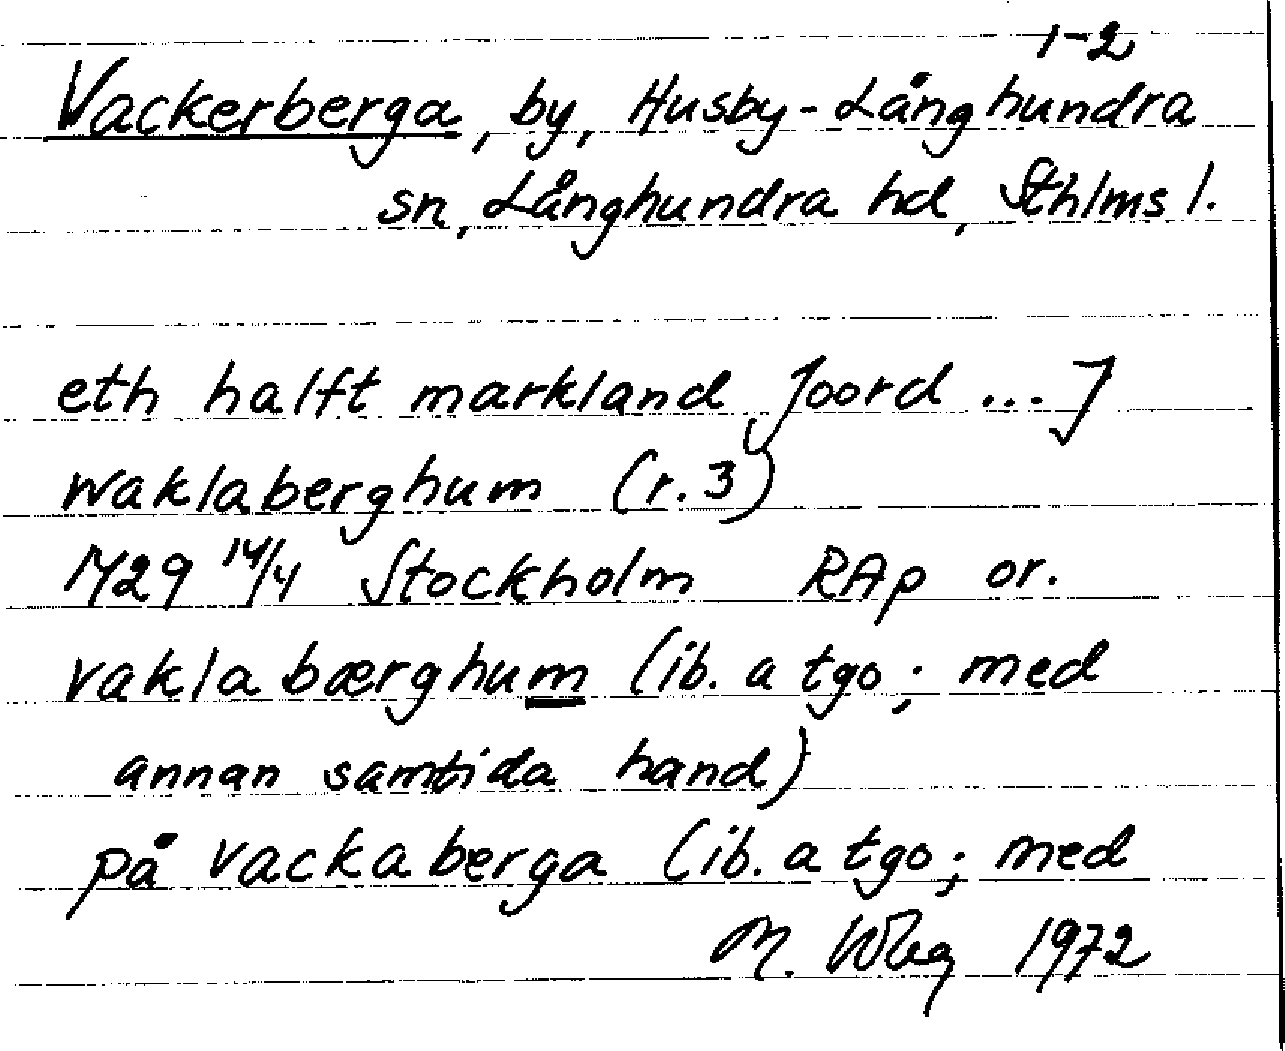 1-2
Vackerberga, by, Husby-Långhundra
sn, Långhundra hd, Sthlms l.
eth halft markland Joord ... J
waklaberghum (r. 3)
1429 14/4 Stockholm RAp or.
vaklabærghum (ib. a tgo; med
annan samtida hand)
på vackaberga (ib. a tgo; med
M. Wbg 1972